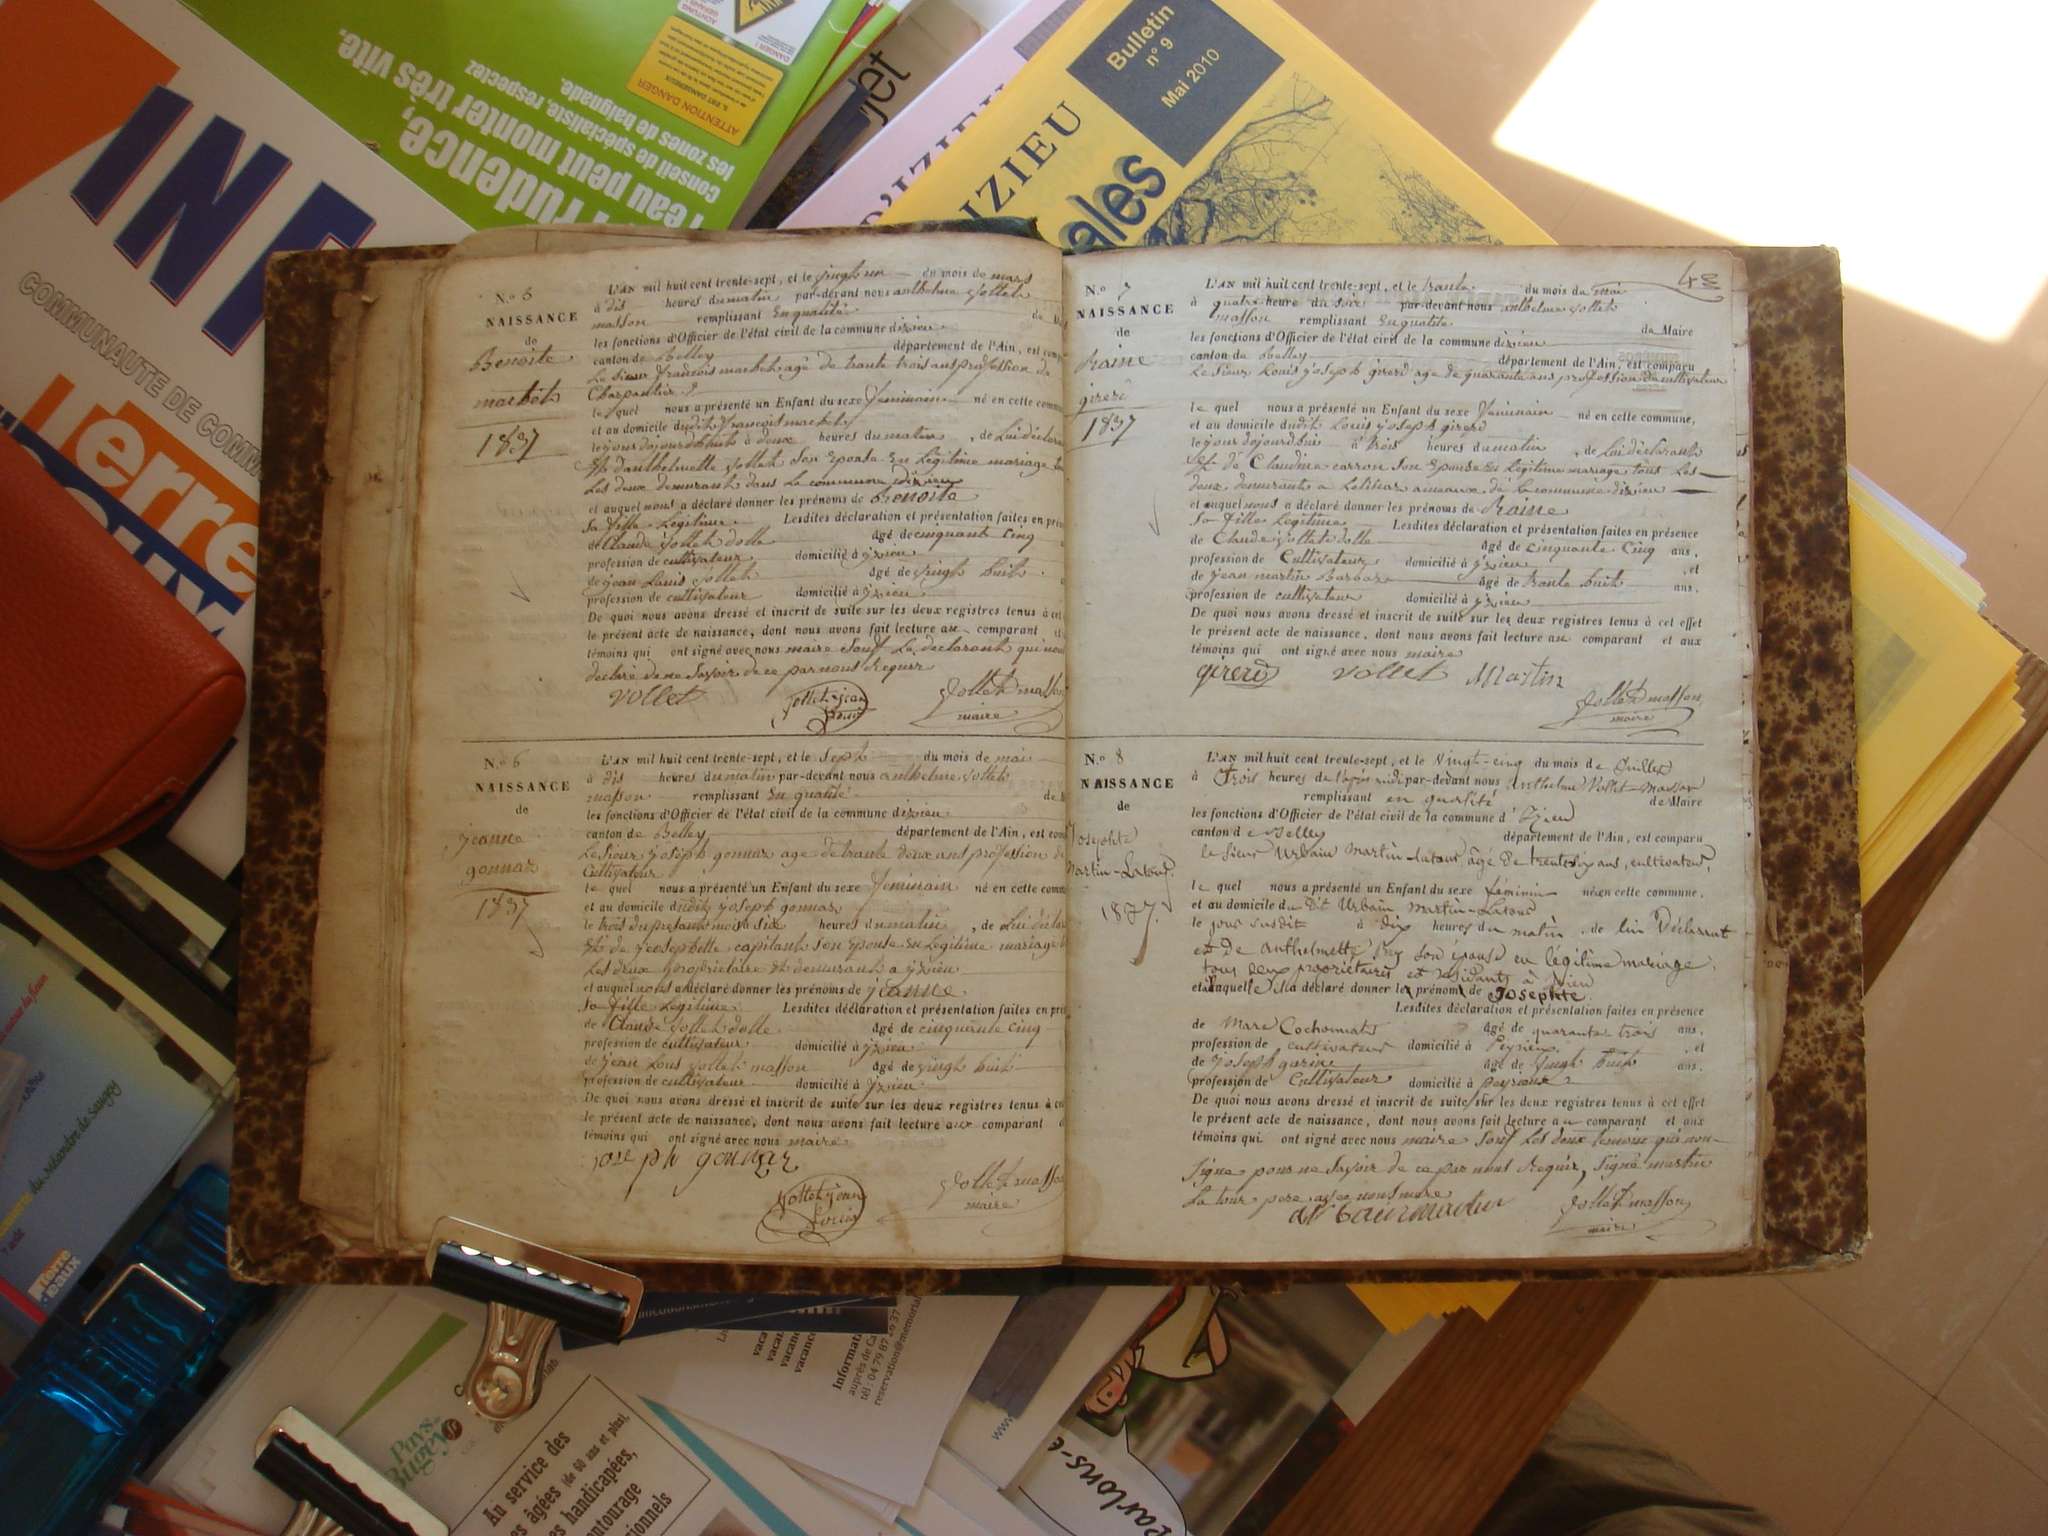 INF
COMMUNAUTÉ DE COMM
Terre
d'eau
ATTENTION DANGER
Prudence,
l'eau peut monter très vite.
conseil de spécialiste, respectez
les zones de baignade.
jet
D'IZIEU
IZIEU
ales
Bulletin
n° 9
Mai 2010
N.º 5
NAISSANCE
de
Benoite
marbeh
1837
L'AN mil huit cent trente-sept, et le vingh un du mois de mars
à dis heures du matin par-devant nous anthelme volleh
masson remplissant En qualité
les fonctions d'Officier de l'état civil de la commune dizieu
canton de Belley département de l'Ain, est comp
Le Sieur francois marbeh agé de trante trois ans profession de
Charpantier
le quel nous a présenté un Enfant du sexe feminain né en cette commu
et au domicile dudit francois marbeh
le jour dojourdhuit à deux heures du matin, de Lui déclara
Et danthelmette volleh Son Epouse En Légitime mariage
Les deux demurant dans La commune dizieu
et auquel nous a déclaré donner les prénoms de Benoite
Sa fille Légitime. Lesdites déclaration et présentation faites en pré
de Claude volleh dolle âgé de cinquant cinq
profession de cultivateur domicilié à yzieu
de jean Louis volleh âgé de vingh huih
profession de cultivateur domicilié à yzieu
De quoi nous avons dressé et inscrit de suite sur les deux registres tenus à cet
le présent acte de naissance, dont nous avons fait lecture au comparant et
témoins qui ont signé avec nous maire Souf Le declarant qui nous
déclaré de ne Savoir de ce par nous Requir
vollet volleh jean Louis volleh masson
maire
N.º 6
NAISSANCE
de
jeanne
gonnar
1837
L'AN mil huit cent trente-sept, et le Seph du mois de mai
à dis heures du matin par-devant nous anthelme volleh
masson remplissant En qualité
les fonctions d'Officier de l'état civil de la commune dizieu
canton de Belley département de l'Ain, est com
Le Sieur joseph gonnar agé de trante deux ans profession de
Cultivateur
le quel nous a présenté un Enfant du sexe feminain né en cette comm
et au domicile dudit joseph gonnar
le trois du présant mois a Sise heures du matin, de Lui décla
Et de joosephette capitant Son Epouse En Légitime mariage
Les deux propriétaire Et demurant a yzieu
et auquel nous a déclaré donner les prénoms de jeanne
Sa fille Légitime. Lesdites déclaration et présentation faites en pré
de Claude volleh dolle âgé de cinquante cinq
profession de cultivateur domicilié à yzieu
de jean Louis volleh masson âgé de vingh huih
profession de cultivateur domicilié à yzieu
De quoi nous avons dressé et inscrit de suite sur les deux registres tenus à cet
le présent acte de naissance, dont nous avons fait lecture aux comparant
témoins qui ont signé avec nous maire
joseph gonnar
volleh jean Louis volleh masson
maire
48
N.º 7
NAISSANCE
de
Raine
girerd
1837
L'AN mil huit cent trente-sept, et le trante du mois du mai
à quatre heure du Soir par-devant nous anthelme volleh
masson remplissant En qualité de Maire
les fonctions d'Officier de l'état civil de la commune dizieu
canton de Belley département de l'Ain, est comparu
Le Sieur Louis joseph girerd age de quarante ans profession de cultivateur
le quel nous a présenté un Enfant du sexe feminain né en cette commune,
et au domicile dudit Louis joseph girerd
le jour dojourdhui à trois heures du matin, de Lui déclarant
Et de Claudine carron Son Epouse En Légitime mariage tous Les
deux demurant a ameaux de La commune dizieu
et auquel nous a déclaré donner les prénoms de Raine
Sa fille Légitime Lesdites déclaration et présentation faites en présence
de Claude volleh dolle âgé de cinquante cinq ans,
profession de Cultivateur domicilié à yzieu, et
de jean martin Barbaz âgé de trante huih ans,
profession de cultivateur domicilié à yzieu
De quoi nous avons dressé et inscrit de suite sur les deux registres tenus à cet effet
le présent acte de naissance, dont nous avons fait lecture au comparant et aux
témoins qui ont signé avec nous maire
girerd vollet Martin
volleh masson
maire
N.º 8
NAISSANCE
de
Josephte
Martin-Latour
1837.
L'AN mil huit cent trente-sept, et le Vingt-cinq du mois de Juillet
à trois heures de l'après midi par-devant nous Anthelme Vollet-Masson
remplissant en qualité de Maire
les fonctions d'Officier de l'état civil de la commune d'Izieu
canton de Belley département de l'Ain, est comparu
le sieur Urbain Martin-Latour, âgé de trente six ans, cultivateur,
le quel nous a présenté un Enfant du sexe féminin née en cette commune.
et au domicile du dit Urbain Martin-Latour
le jour susdit à dix heures du matin, de lui Déclarant
et de Anthelmette Rey son épouse en légitime mariage,
tous deux propriétaires et résidants à Izieu
et à laquelle il a déclaré donner le prénom de Josephte.
Lesdites déclaration et présentation faites en présence
de Marc Cochonnat âgé de quarante trois ans,
profession de cultivateur domicilié à Peyrieux, et
de joseph garine âgé de vingh huih ans.
profession de Cultivateur domicilié à peyrieux
De quoi nous avons dressé et inscrit de suite sur les deux registres tenus à cet effet
le présent acte de naissance, dont nous avons fait lecture au comparant et aux
témoins qui ont signé avec nous maire Souf Les deux temoins qui non
Signe pour ne Savoir de ce par nous Requir, Signé martin
La tour pere avec nous maire
volleh masson
maire
du Méandre du Saugey
Pays
Bugey
Au service des
âgées (de 60 ans et plus),
handicapées,
entourage
Informat
auprès de Ca
tél : 04 79 87 26 37
reservation@memorial
www
Parlons-e